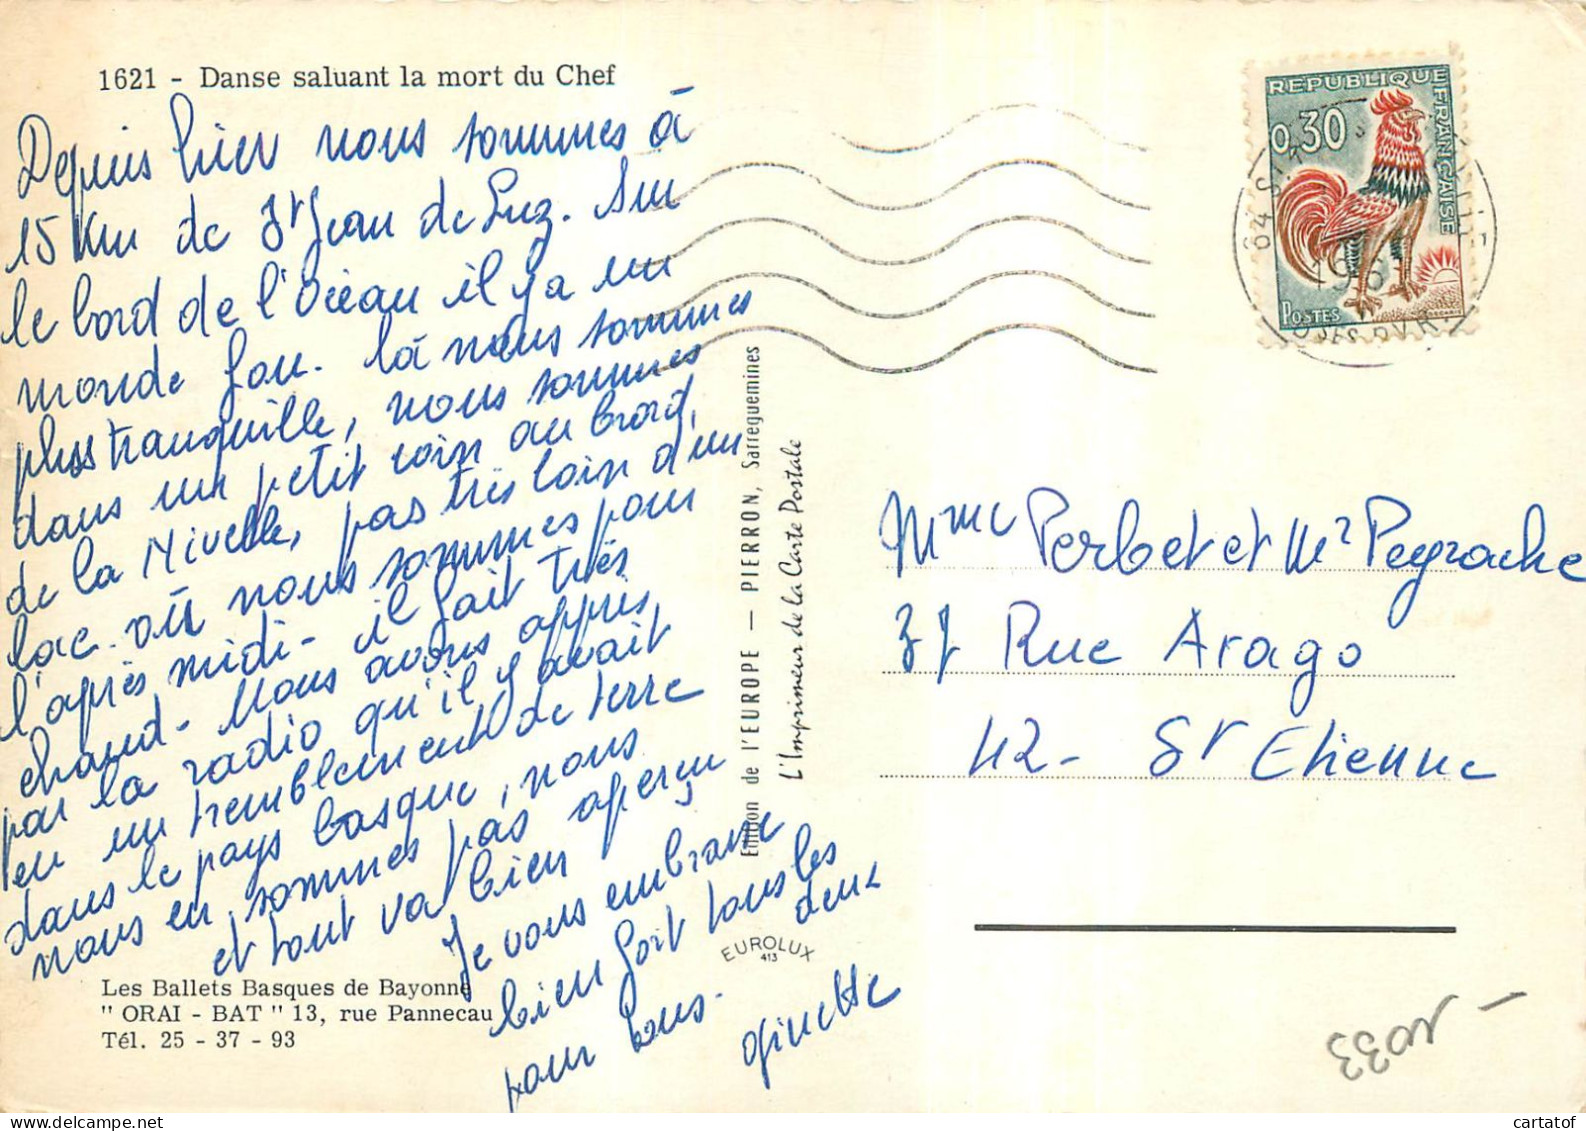 1621 - Danse saluant la mort du Chef
Depuis hier nous sommes à
15 Km de St Jean de Luz. Sur
le bord de l'Océan il y a un
monde fou. là nous sommes
plus tranquille, nous sommes
dans un petit coin au bord,
de la Nivelle, pas très loin d'un
lac. où nous sommes pour
l'après midi - il fait très
chaud - Nous avons appris
par la radio qu'il y avait
eu un tremblement de terre
dans le pays basque, nous
nous en sommes pas aperçu
et tout va bien
Je vous embrasse
bien fort tous les
deux
pour tous.
Ginette
Les Ballets Basques de Bayonne
" ORAI - BAT " 13, rue Pannecau
Tél. 25 - 37 - 93
Edition de l'EUROPE — PIERRON, Sarreguemines
L'Imprimeur de la Carte Postale
EUROLUX
413
REPUBLIQUE FRANÇAISE
0,30
POSTES
64 ST
196
Mme Perbet et Mr Peyrache
37 Rue Arago
42 - St Etienne
1033
cartatof